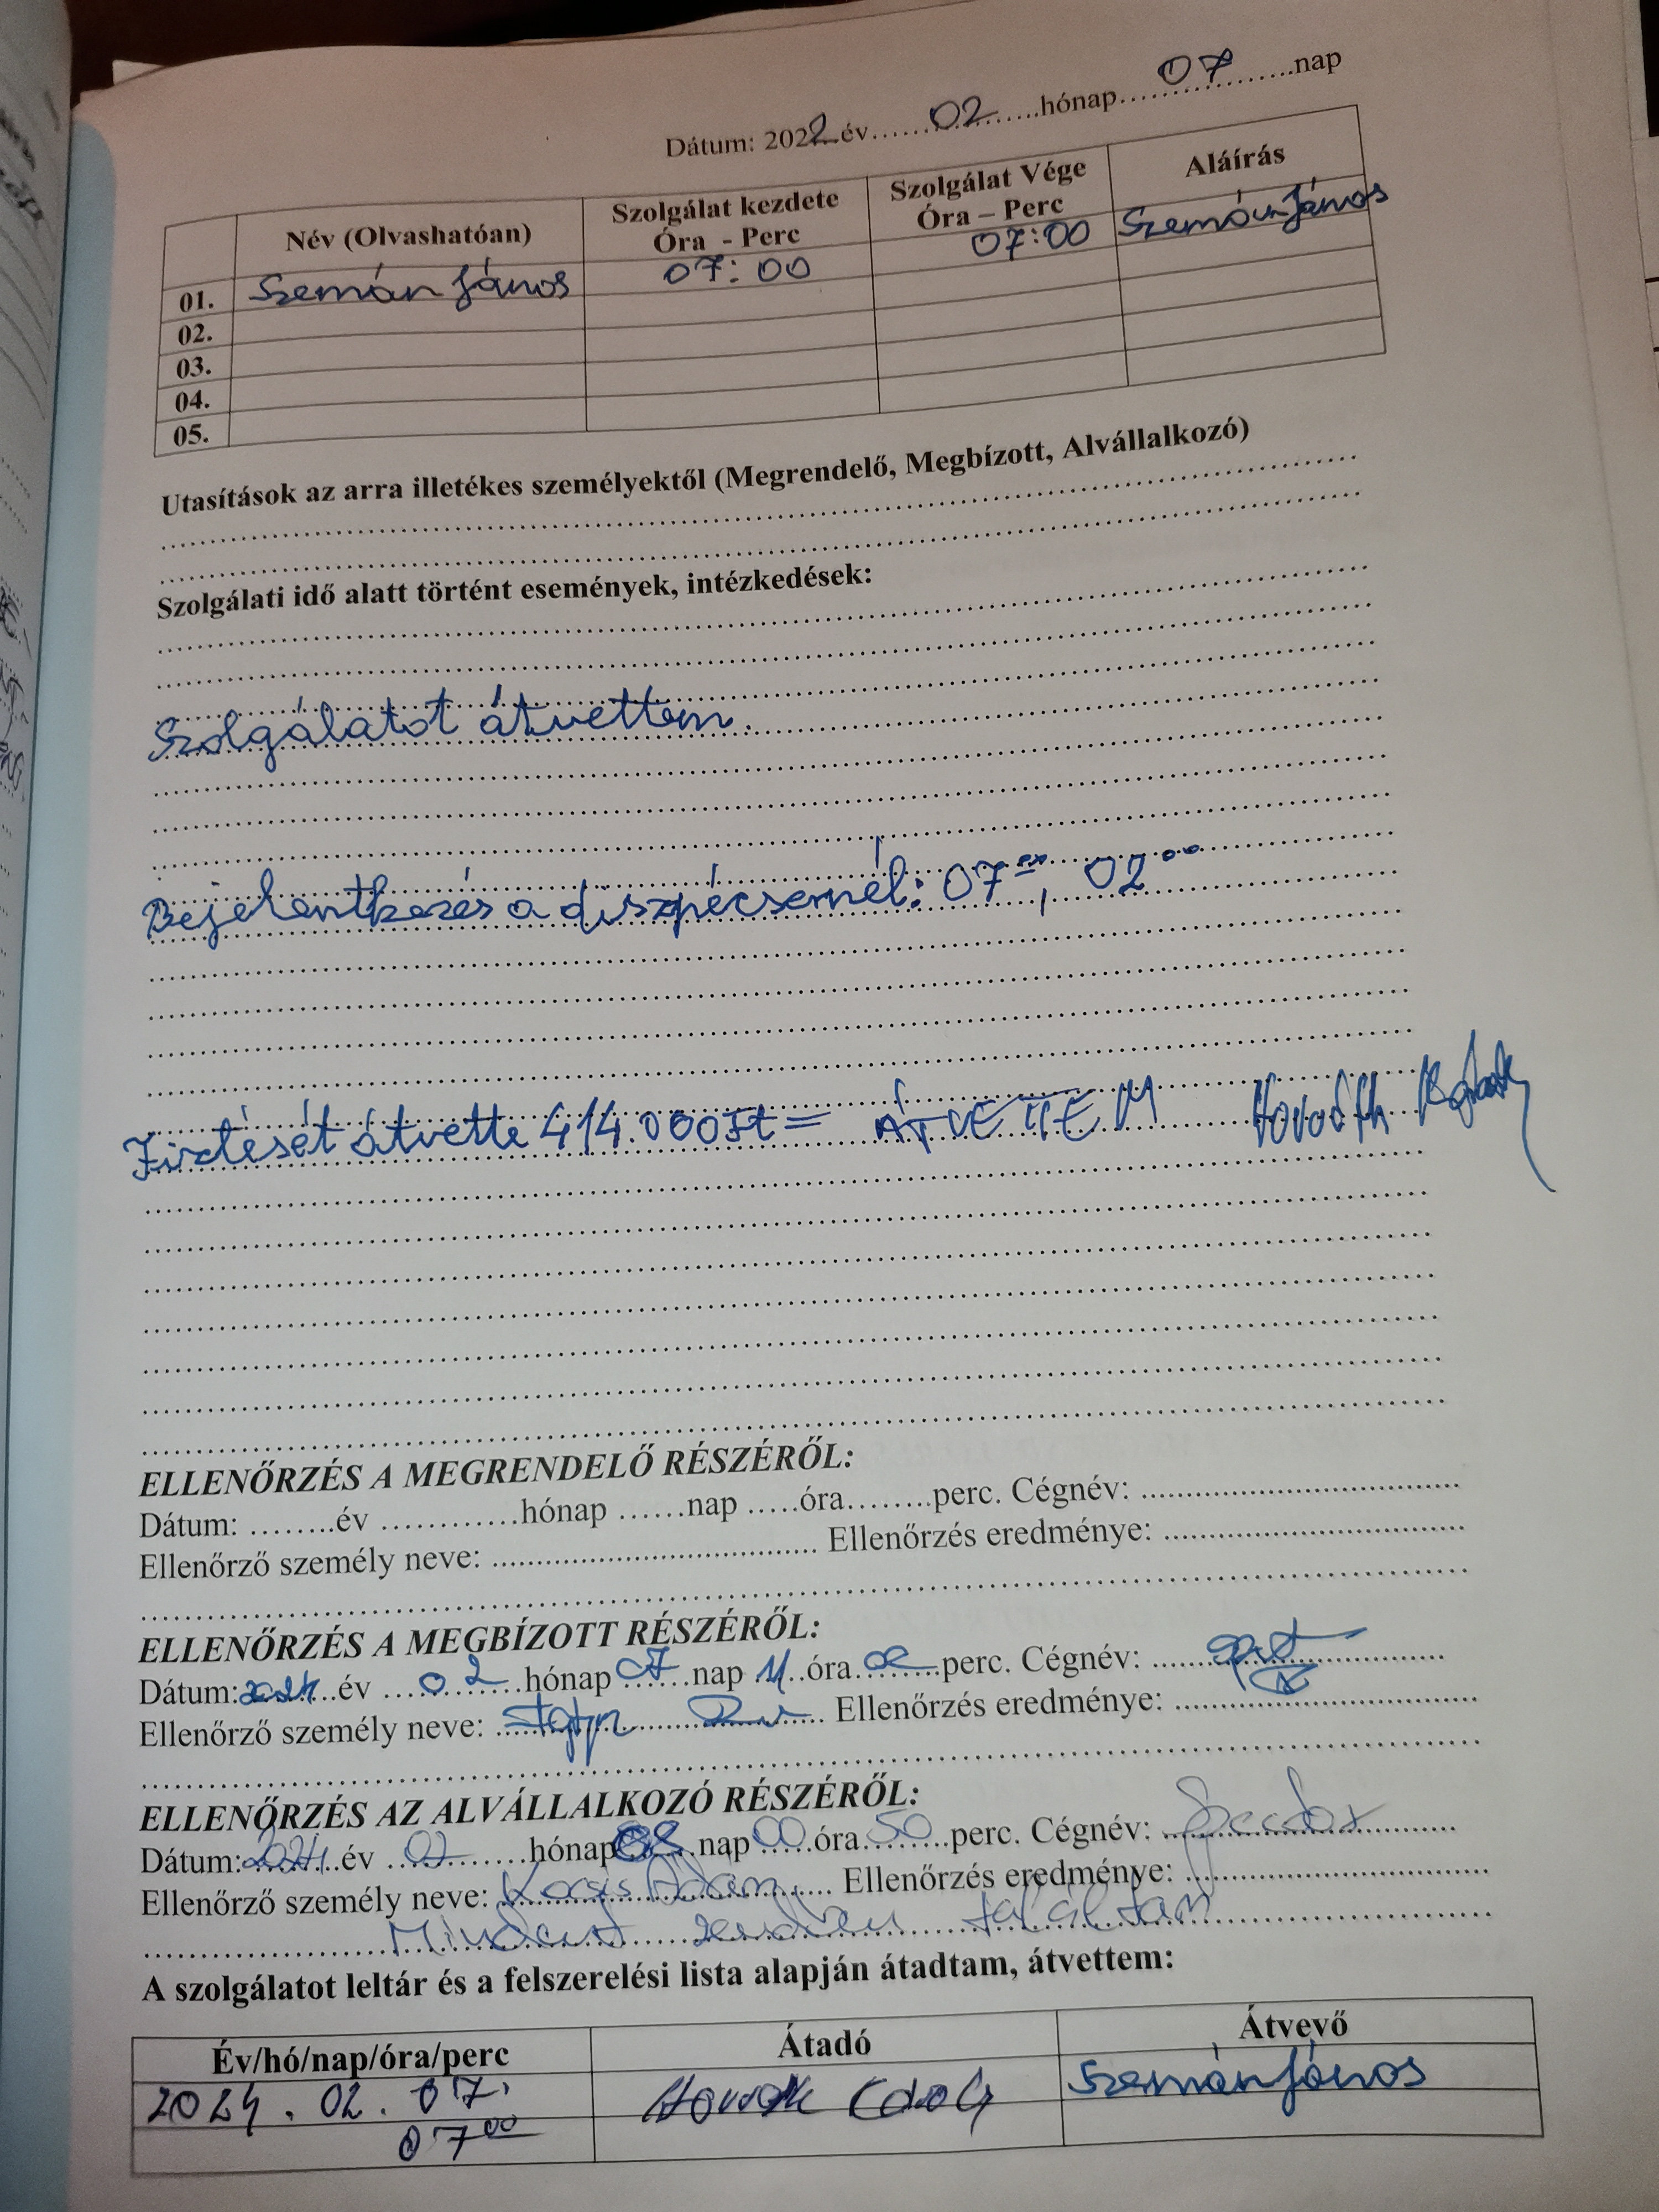 Dátum: 2022 év 02 hónap 07 nap
Név (Olvashatóan) Szolgálat kezdete Óra - Perc Szolgálat Vége Óra – Perc Aláírás
01. Szemán János 07:00 07:00 Szemán János
02.
03.
04.
05.
Utasítások az arra illetékes személyektől (Megrendelő, Megbízott, Alvállalkozó)
Szolgálati idő alatt történt események, intézkedések:
Szolgálatot átvettem.
Bejelentkezés a diszpécsernél: 07⁰⁰, 02⁰⁰
Fizetését átvette 414.000Ft = ÁTVETTEM Horváth
ELLENŐRZÉS A MEGRENDELŐ RÉSZÉRŐL:
Dátum: ........év ............hónap ......nap .....óra........perc. Cégnév: ....................
Ellenőrző személy neve: .................... Ellenőrzés eredménye: ....................
ELLENŐRZÉS A MEGBÍZOTT RÉSZÉRŐL:
Dátum: 2024 év 02 hónap 07 nap 11 óra 02 perc. Cégnév:
Ellenőrző személy neve: Ellenőrzés eredménye:
ELLENŐRZÉS AZ ALVÁLLALKOZÓ RÉSZÉRŐL:
Dátum: 2024 év 02 hónap 08 nap 00 óra 50 perc. Cégnév:
Ellenőrző személy neve: Kocsis Ádám Ellenőrzés eredménye:
Mindent rendben találtam
A szolgálatot leltár és a felszerelési lista alapján átadtam, átvettem:
Év/hó/nap/óra/perc Átadó Átvevő
2024. 02. 07. Horváth Szemán János
07⁰⁰